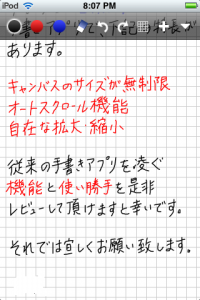 iPod 8:07 PM
あります。
キャンバスのサイズが無制限
オートスクロール機能
自在な拡大・縮小
従来の手書きアプリを凌ぐ
機能と使い勝手を是非
レビューして頂けますと幸いです。
それでは宜しくお願い致します。